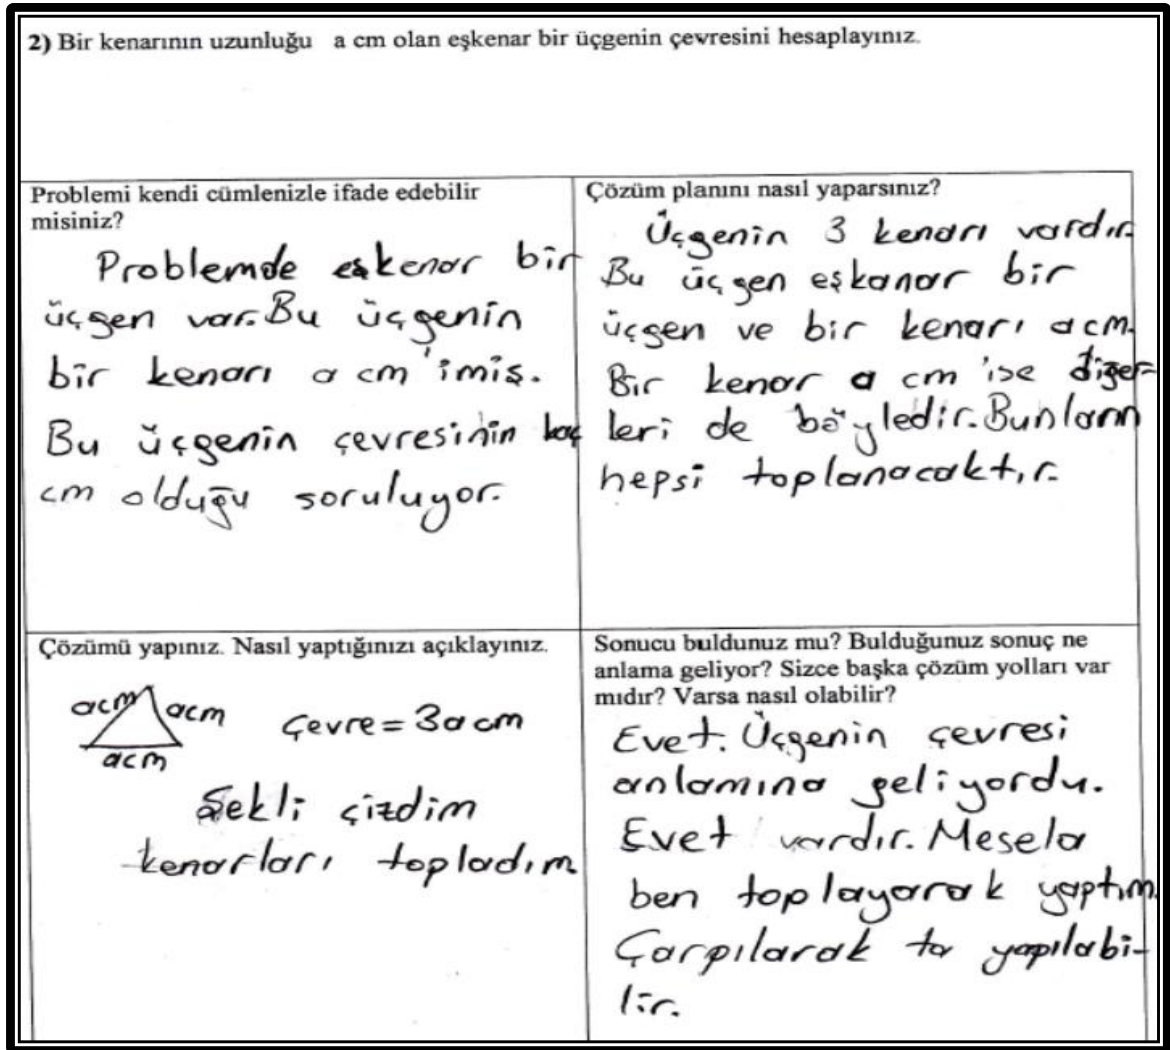 2) Bir kenarının uzunluğu a cm olan eşkenar bir üçgenin çevresini hesaplayınız.
Problemi kendi cümlenizle ifade edebilir
misiniz?
Problemde eşkenar bir
üçgen var. Bu üçgenin
bir kenarı a cm'imiş.
Bu üçgenin çevresinin kaç
cm olduğu soruluyor.
Çözüm planını nasıl yaparsınız?
Üçgenin 3 kenarı vardır.
Bu üçgen eşkanar bir
üçgen ve bir kenarı a cm.
Bir kenar a cm 'ise diğer-
leri de böyledir. Bunların
hepsi toplanacaktır.
Çözümü yapınız. Nasıl yaptığınızı açıklayınız.
acm acm Çevre = 3a cm
acm
Şekli çizdim
kenarları topladım
Sonucu buldunuz mu? Bulduğunuz sonuç ne
anlama geliyor? Sizce başka çözüm yolları var
mıdır? Varsa nasıl olabilir?
Evet. Üçgenin çevresi
anlamına geliyordu.
Evet vardır. Mesela
ben toplayarak yaptım.
Çarpılarak ta yapılabi-
lir.